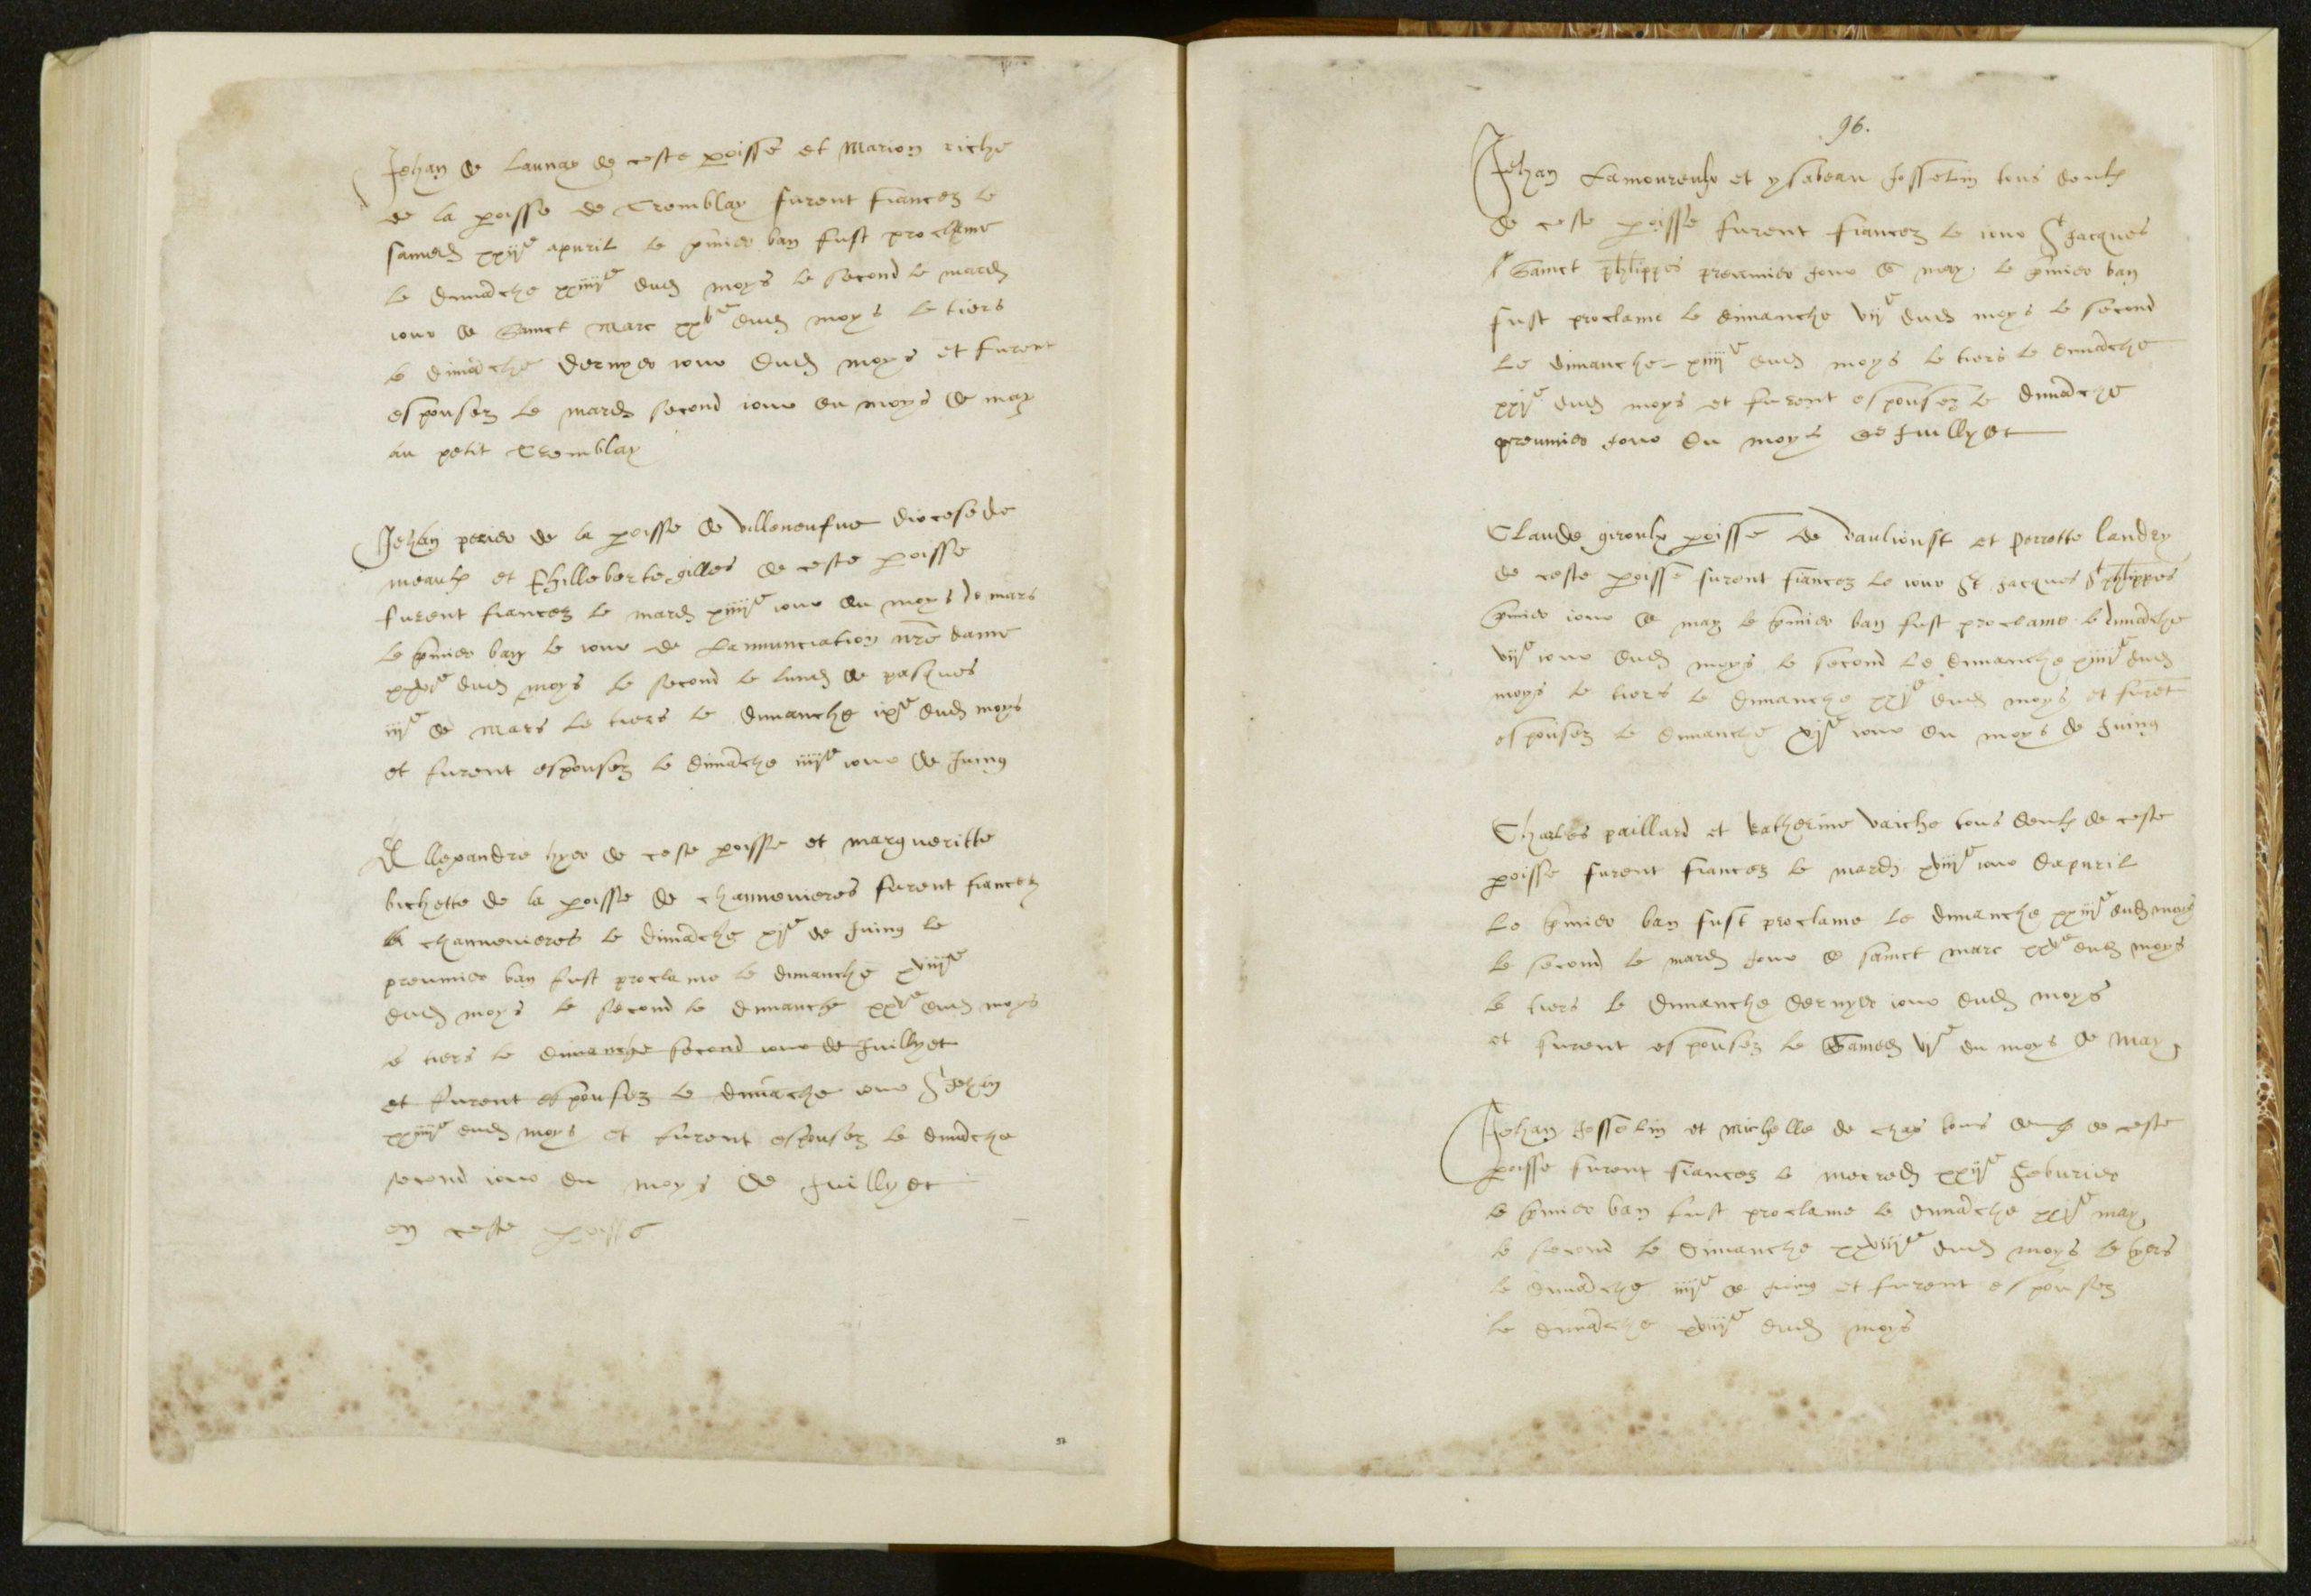 Jehan de Launay de ceste poisse et Marion riche
de la poisse de Tremblay furent fiancez le
samedj xxiije apuril le pmier ban fust proclame
le dimāche xxiiije dudj moys le second le mardj
iour de Sainct Marc xxve dudj moys le tiers
le dimāche dernyer iour dudj moys et furent
espousez le mardj second iour du moys de may
au petit Tremblay
Jehan perier de la poisse de villeneufue diocese de
meaulx et Philleberte gilles de ceste poisse
furent fiancez le mardj xiiije iour du moys de mars
le pmier ban le iour de Lannunciation nre dame
xxve dudj moys le second le lundj de pasques
iije de Mars le tiers le dimanche ixe dudj moys
et furent espousez le dimāche iiije iour de Juing
Allexandre hyer de ceste poisse et margueritte
bichette de la poisse de channeuieres furent fiancez
a channeuieres le dimāche xje de Juing le
preumier ban fust proclame le dimanche xviije
dudj moys le second le dimanche xxve dudj moys
le tiers le dimanche second iour de Juillyet
et furent espousez le dimāche iour St Jehan
xxiiije dudj moys et furent espousez le dimāche
second iour du moys de Juillyet
en ceste poisse
57
96.
Jehan Lamoureulx et ysabeau Josselin tous deulx
de ceste poisse furent fiancez le iour St Jacques
St Sainct phlippes preumier Jour de may. le pmier ban
fust proclame le dimanche vije dudj moys le second
le dimanche xiiije dudj moys le tiers le dimāche
xxje dudj moys et furent espousez le dimāche
preumier Jour du moys de Juillyet
Claude giroulx poisse de vaulionst et Perrette landry
de ceste poisse furent fiancez le iour St Jacques St phlippes
pmier iour de may le pmier ban fust proclame le dimāche
vije iour dudj moys le second le dimanche xiiije dudj
moys le tiers le dimanche xxje dudj moys et furēt
espousez le dimanche xje iour du moys de Juing
Charles paillard et katherine vaiche tous deulx de ceste
poisse furent fiancez le mardj xviije iour dapuril
le pmier ban fust proclame le dimanche xxiije dudj moys
le second le mardj Jour de sainct marc xxve dudj moys
le tiers le dimanche dernyer iour dudj moys
et furent espousez le Samedj vje du moys de May
Jehan Josselin et Michelle de chas tous deulx de ceste
poisse furent fiancez le mecredj xxije feburier
le pmier ban fust proclame le dimāche xxje may
le second le dimanche xxviije dudj moys le tyers
le dimāche iiije de Juing et furent espousez
le dimāche xviije dudj moys